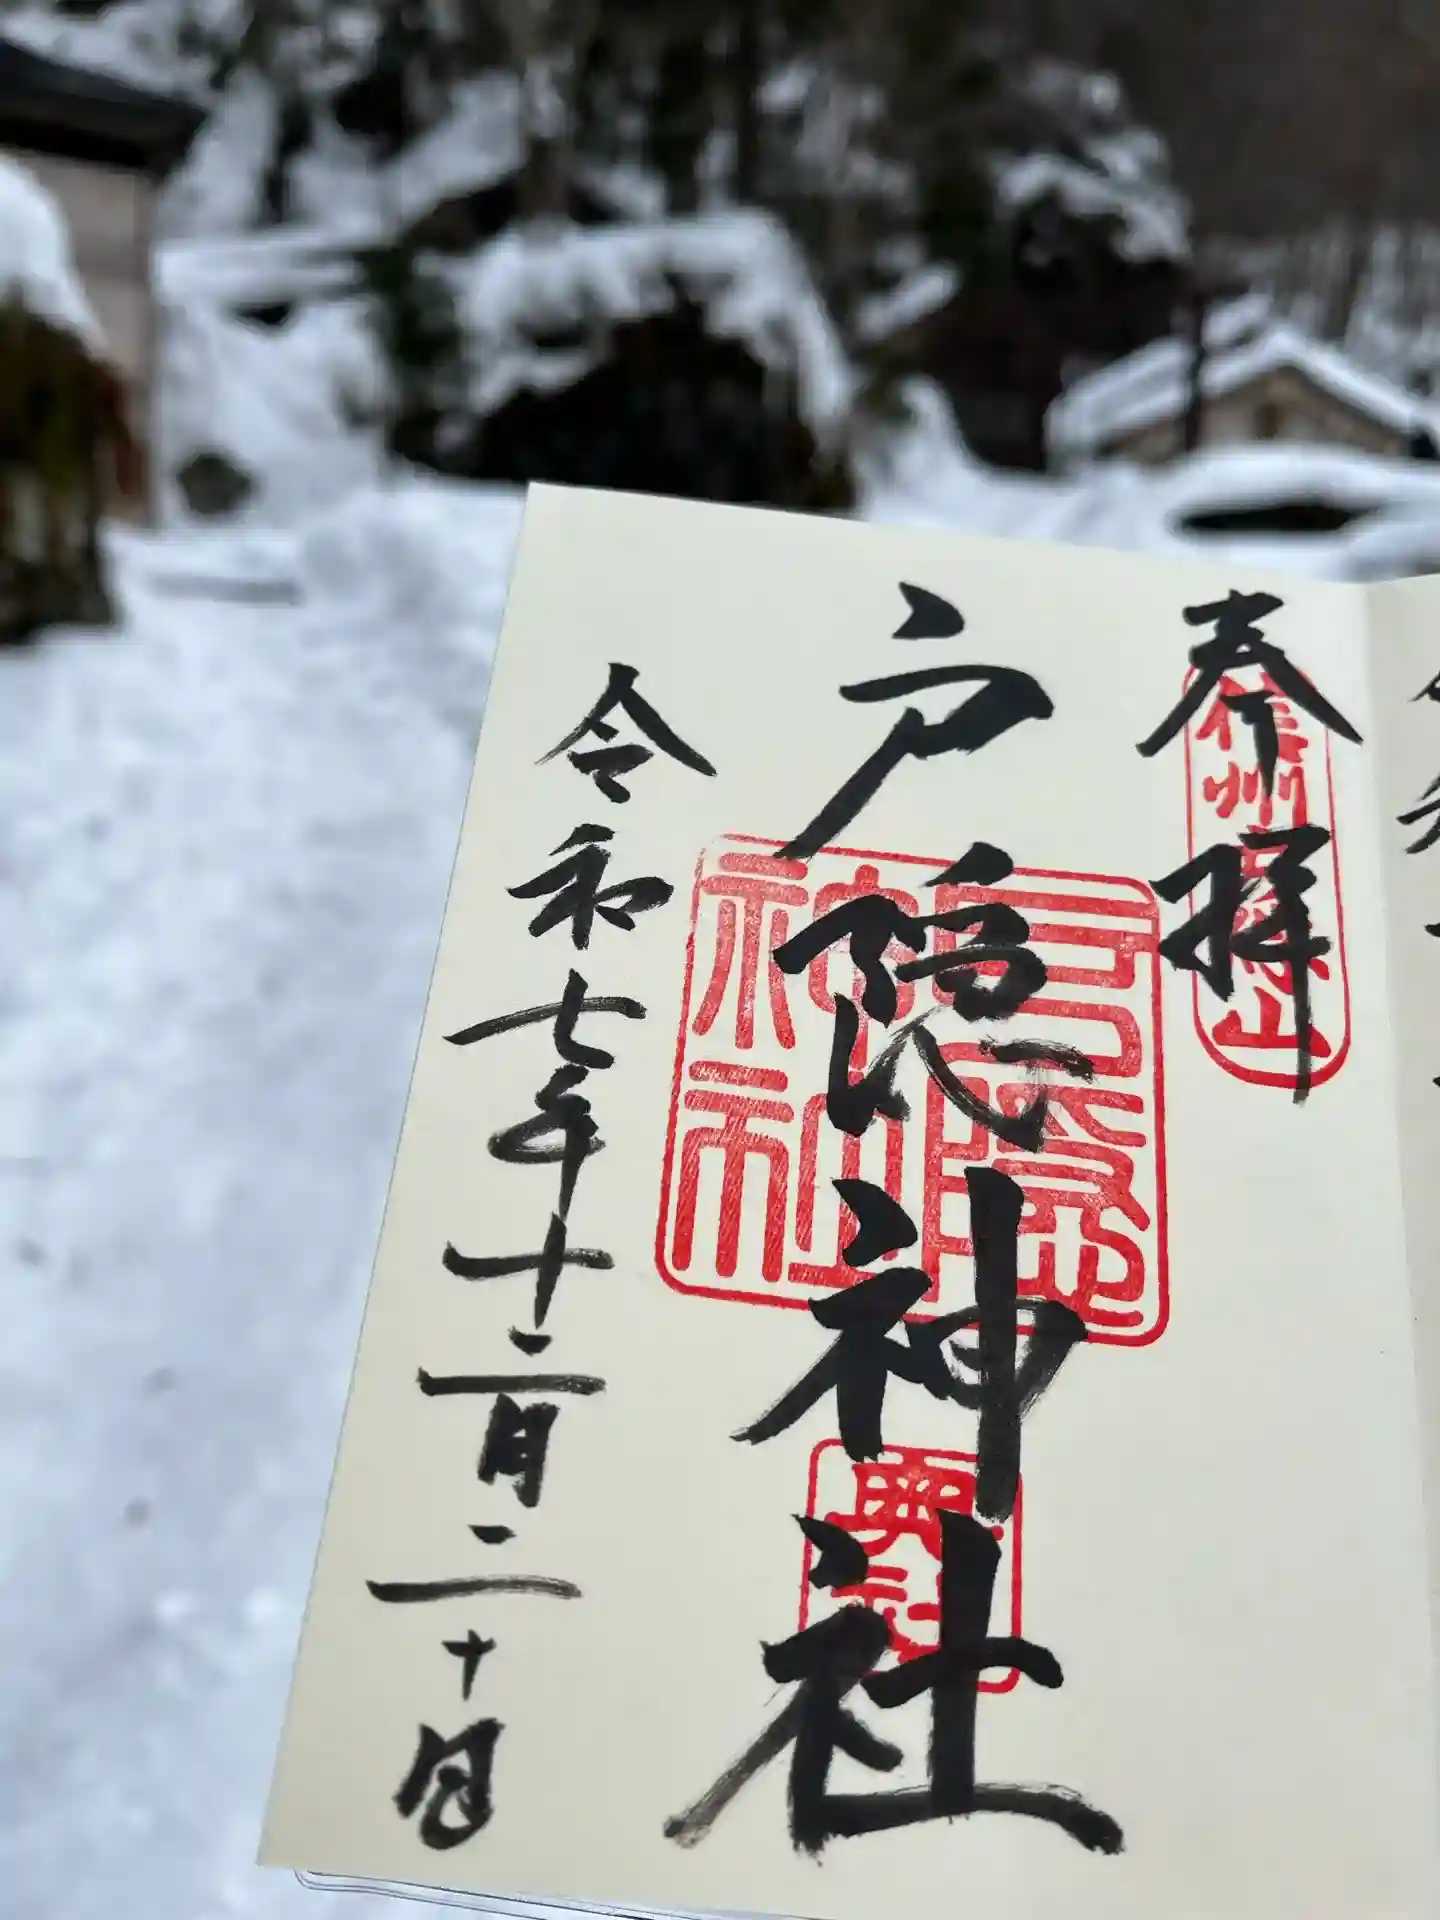 奉拝
信州戸隠山
戸隠神社
戸隠神社
奥社
令和七年十二月二十日